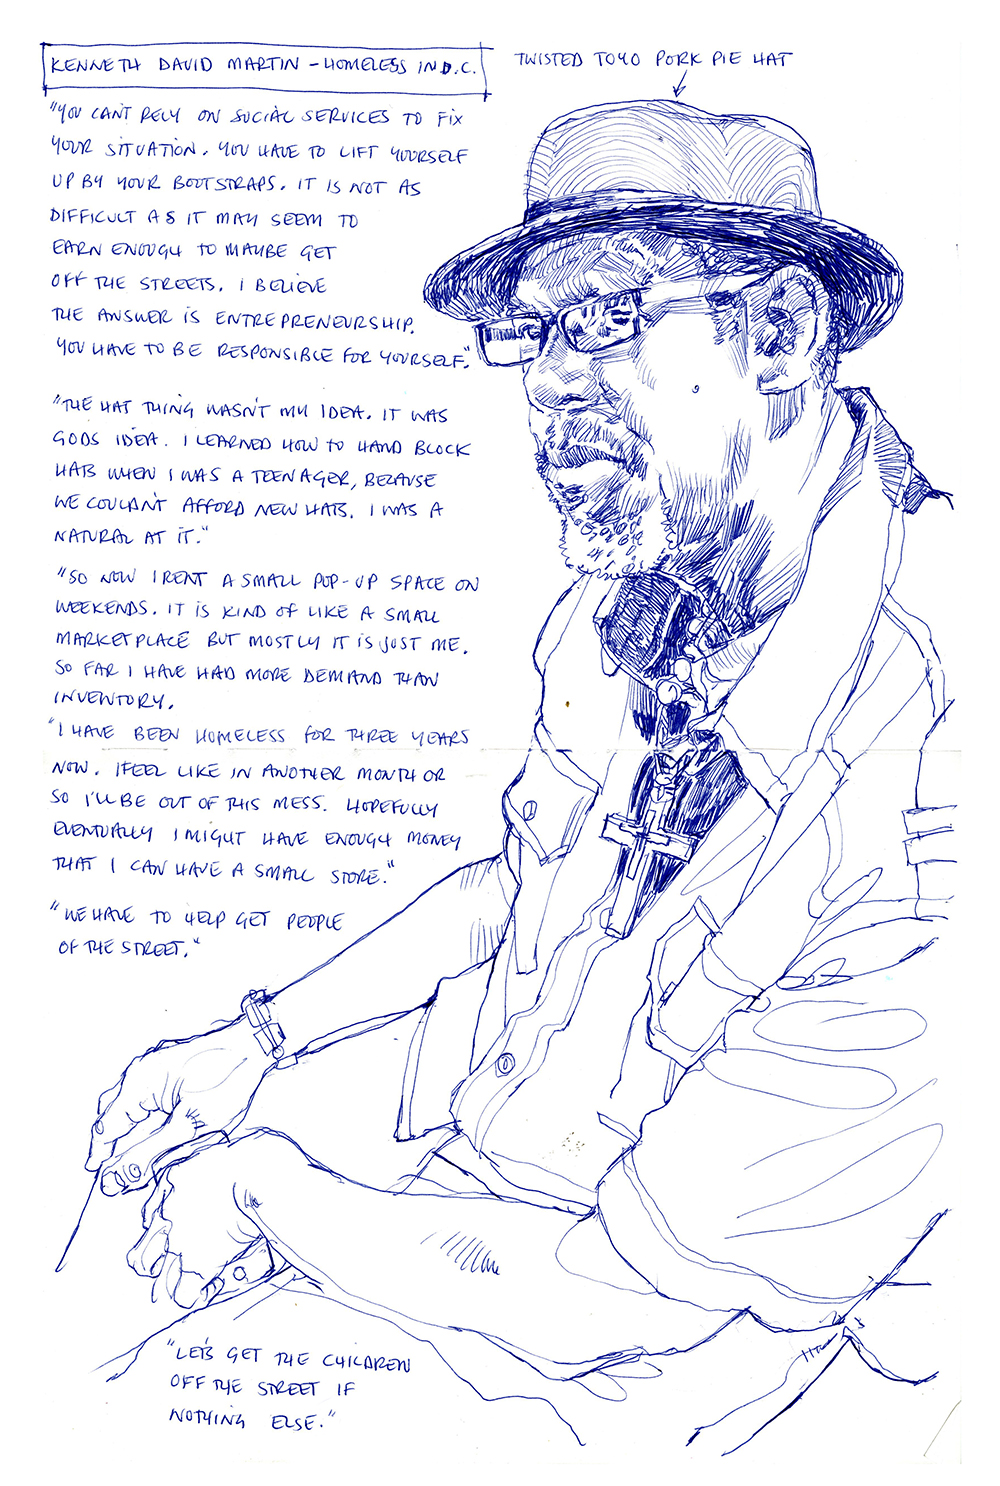 KENNETH DAVID MARTIN - HOMELESS IN D.C.
TWISTED TOYO PORK PIE HAT
"YOU CAN'T RELY ON SOCIAL SERVICES TO FIX
YOUR SITUATION. YOU HAVE TO LIFT YOURSELF
UP BY YOUR BOOTSTRAPS. IT IS NOT AS
DIFFICULT AS IT MAY SEEM TO
EARN ENOUGH TO MAYBE GET
OFF THE STREETS. I BELIEVE
THE ANSWER IS ENTREPRENEURSHIP.
YOU HAVE TO BE RESPONSIBLE FOR YOURSELF."
"THE HAT THING WASN'T MY IDEA. IT WAS
GODS IDEA. I LEARNED HOW TO HAND BLOCK
HATS WHEN I WAS A TEENAGER, BECAUSE
WE COULDN'T AFFORD NEW HATS. I WAS A
NATURAL AT IT."
"SO NOW I RENT A SMALL POP-UP SPACE ON
WEEKENDS. IT IS KIND OF LIKE A SMALL
MARKETPLACE BUT MOSTLY IT IS JUST ME.
SO FAR I HAVE HAD MORE DEMAND THAN
INVENTORY.
"I HAVE BEEN HOMELESS FOR THREE YEARS
NOW. I FEEL LIKE IN ANOTHER MONTH OR
SO I'LL BE OUT OF THIS MESS. HOPEFULLY
EVENTUALLY I MIGHT HAVE ENOUGH MONEY
THAT I CAN HAVE A SMALL STORE."
"WE HAVE TO HELP GET PEOPLE
OF THE STREET."
"LET'S GET THE CHILDREN
OFF THE STREET IF
NOTHING ELSE."